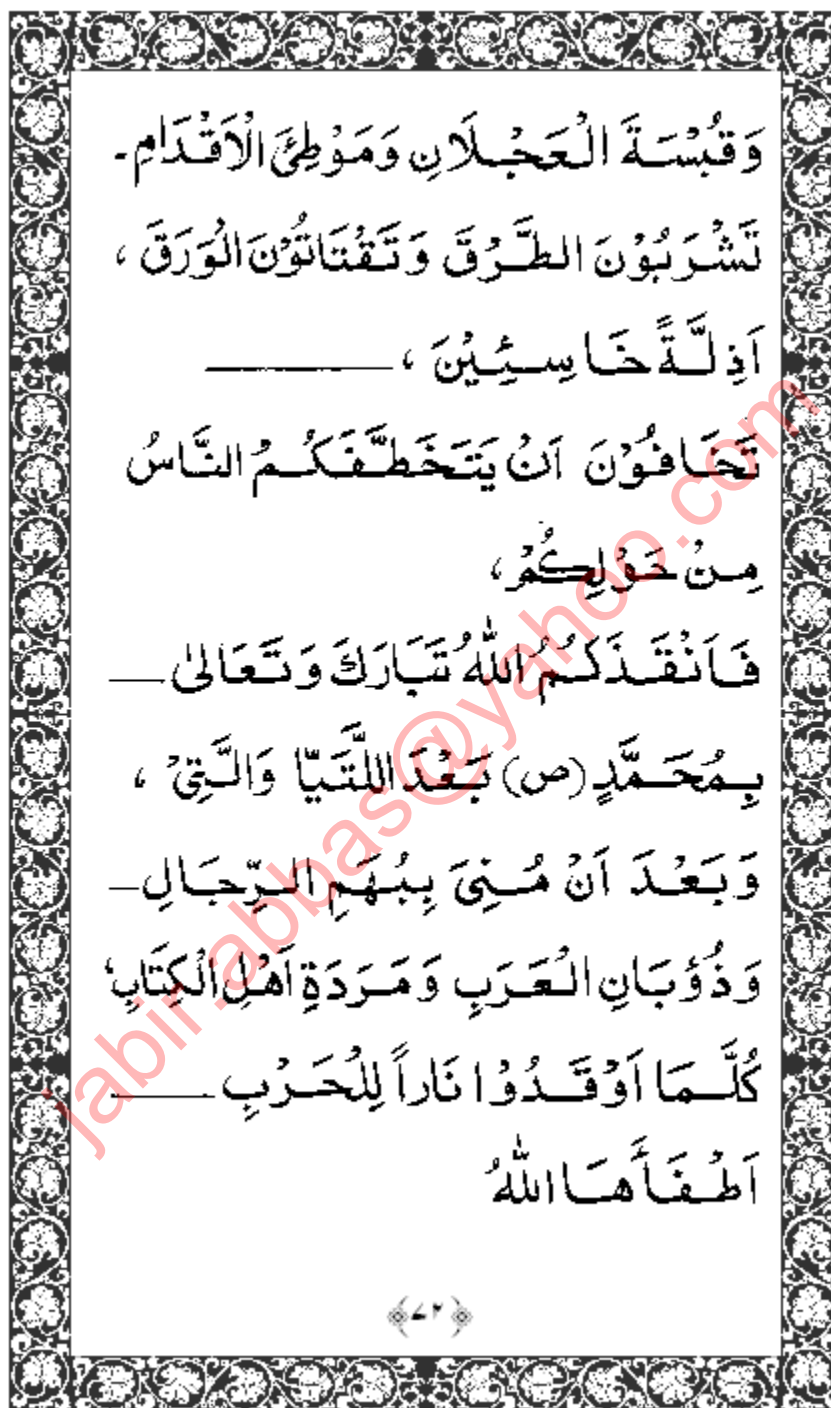 وَقُبْسَةَ الْعَجْلَانِ وَمَوْطِئَ الْاَقْدَامِ۔
تَشْرَبُوْنَ الطَّرْقَ وَتَقْتَاتُوْنَ الْوَرَقَ ،
اَذِلَّةً خَاسِئِيْنَ ، ____
تَخَافُوْنَ اَنْ يَتَخَطَّفَكُمُ النَّاسُ
مِنْ حَوْلِكُمْ ،
فَاَنْقَذَكُمُ اللّٰهُ تَبَارَكَ وَتَعَالٰى __
بِمُحَمَّدٍ (ص) بَعْدَ اللَّتَيَّا وَالَّتِىْ ،
وَبَعْدَ اَنْ مُنِىَ بِبُهَمِ الرِّجَالِ _
وَذُؤْبَانِ الْعَرَبِ وَمَرَدَةِ اَهْلِ الْكِتَابِ ،
كُلَّمَا اَوْقَدُوْا نَاراً لِلْحَرْبِ ___
اَطْفَأَهَا اللّٰهُ
﴿۷۲﴾
jabir.abbas@yahoo.com